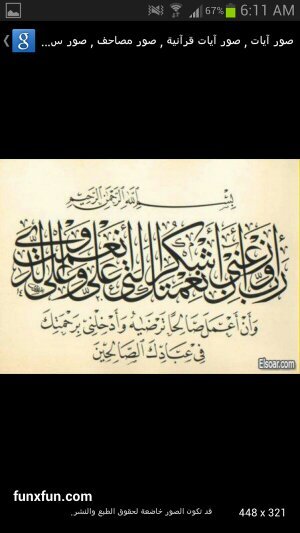 67% 6:11 AM
صور آيات , صور آيات قرآنية , صور مصاحف , صور س...
بسم الله الرحمن الرحيم
رب أوزعني أن أشكر نعمتك التي أنعمت علي وعلى والدي
وَأَنْ أَعْمَلَ صَالِحًا تَرْضَاهُ وَأَدْخِلْنِي بِرَحْمَتِكَ
فِي عِبَادِكَ الصَّالِحِينَ
Elsoar.com
funxfun.com
قد تكون الصور خاضعة لحقوق الطبع والنشر.
448 x 321